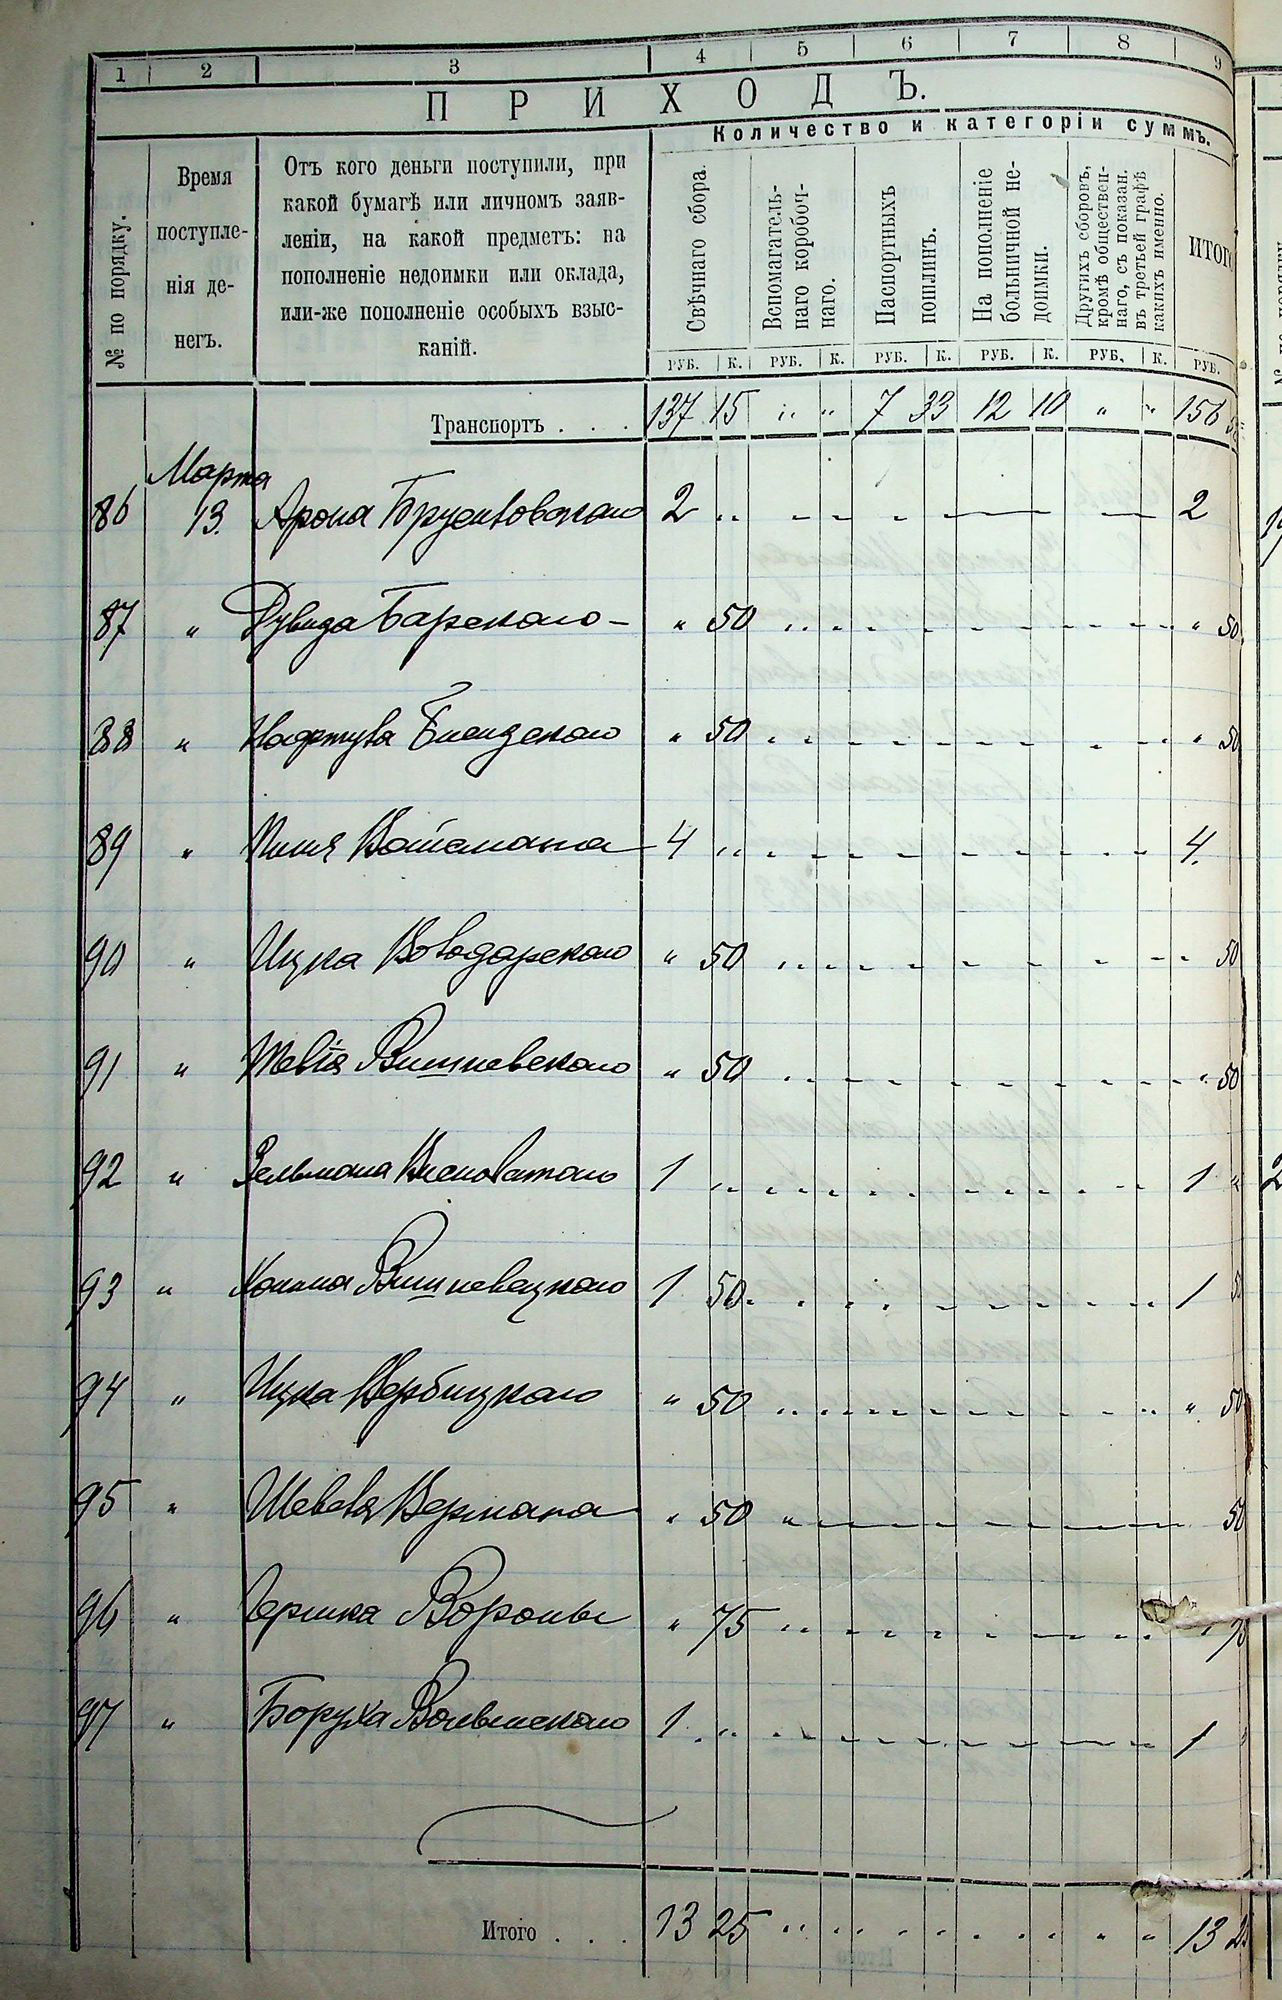 1 2 3 4 5 6 7 8 9
ПРИХОДЪ.
Количество и категоріи суммъ.
№ по порядку.
Время
поступле-
нія де-
негъ.
Отъ кого деньги поступили, при
какой бумагѣ или личномъ заяв-
леніи, на какой предметъ: на
пополненіе недоимки или оклада,
или-же пополненіе особыхъ взыс-
каній.
Свѣчнаго сбора.
Вспомагатель-
наго коробоч-
наго.
Паспортныхъ
пошлинъ.
На пополненіе
больничной не-
доимки.
Другихъ сборовъ,
кромѣ обществен-
наго, съ показан.
въ третьей графѣ
какихъ именно.
ИТОГО
РУБ. К. РУБ. К. РУБ. К. РУБ. К. РУБ. К. РУБ.
Транспортъ . . . 137 15 " " 7 33 12 10 " " 156
Марта
86 13. Арона Брусиловскаго 2 " 2
87 " Дувида Барскаго " 50 " 50
88 " Нафтула " 50 " 50
89 " Вайсмана 4 " 4.
90 " Ицка Володарскаго " 50 50
91 " Тевія Вишневскаго " 50 " 50
92 " Зельмана Висноватаго 1 " 1 "
93 " Вишневецкаго 1 50 1 50
94 " Ицка Вербицкаго " 50 " 50
95 " Шевеля Вермана " 50 " 50
96 " Гершка Вороны " 75 " 75
97 " Боруха Волынскаго 1 " 1
Итого . . . 13 25 " " 13 25